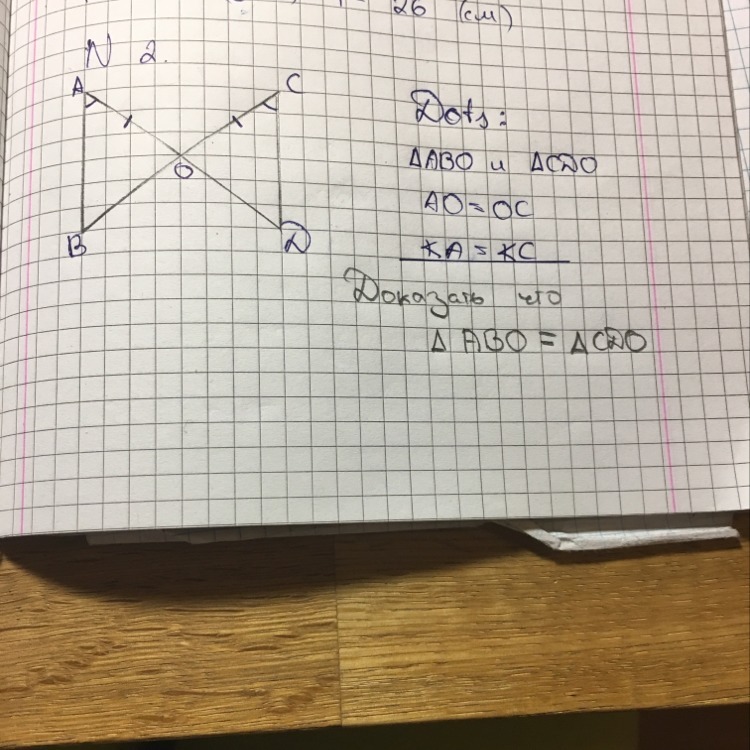 26 (см)
N 2.
A
C
O
B
D
Dots:
ΔABO и ΔCDO
AO = OC
∠A = ∠C
Доказать что
Δ ABO = ΔCDO